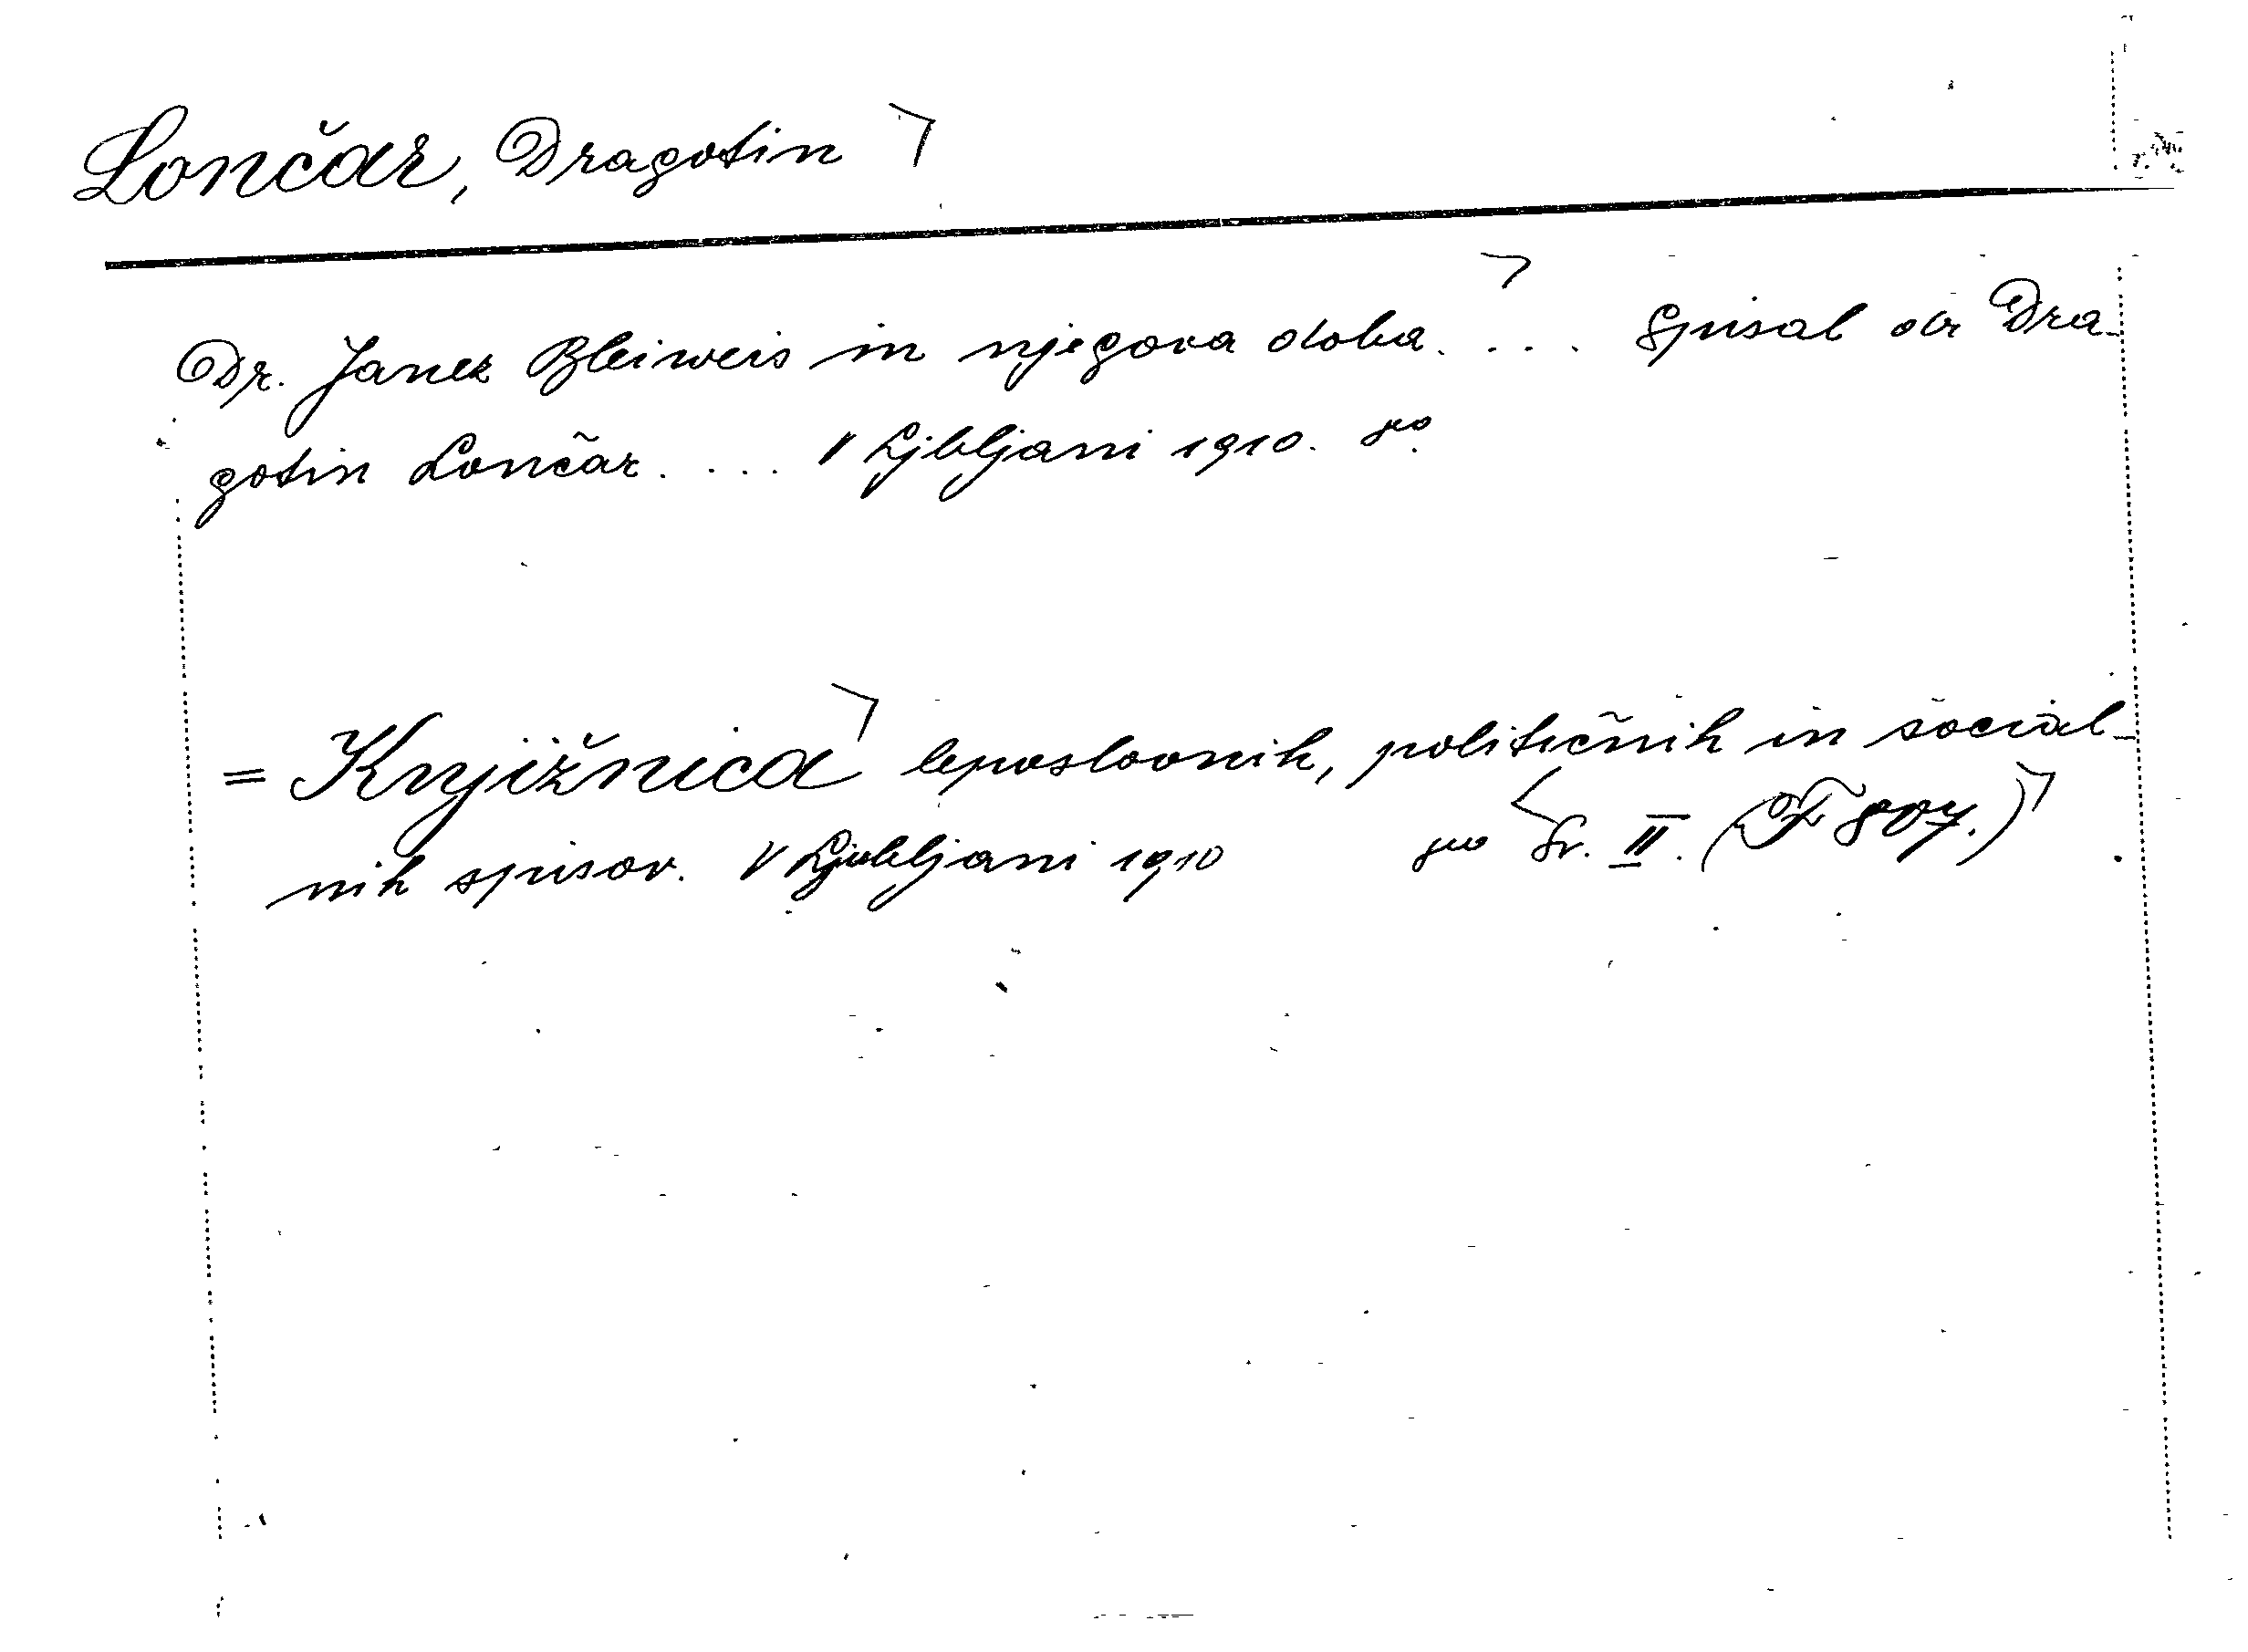 Lončar, Dragotin
Dr. Janez Bleiweis in njegova doba. ... Spisal dr Dra-
gotin Lončar. ... V Ljbljani 1910. 8o.
= Knjižnica leposlovnih, političnih in social-
nih spisov. V Ljubljani 1910 8o Sv. II. (F 807.)